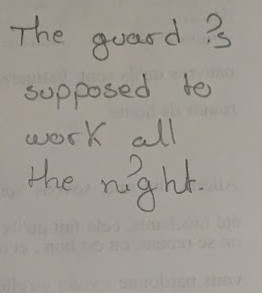 The guard is
supposed to
work all
the night.